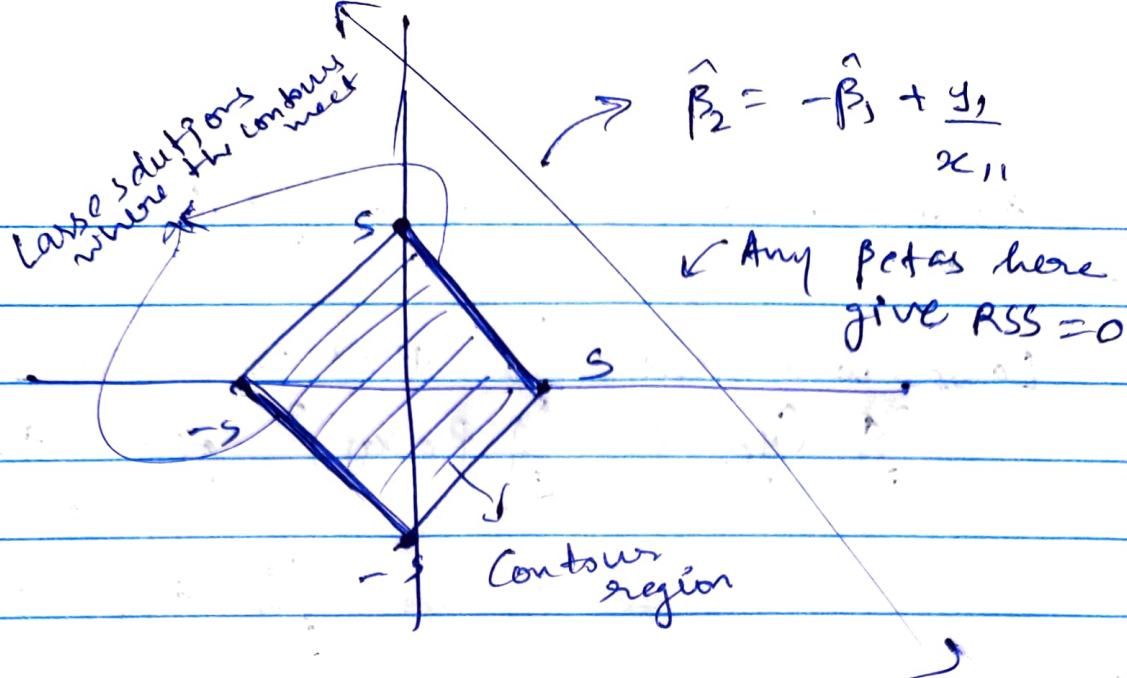 Lasso solutions
where the contours
meet
β̂₂ = -β̂₁ + y₁/x₁₁
Any betas here
give RSS = 0
S
S
-S
-S
Contour
region